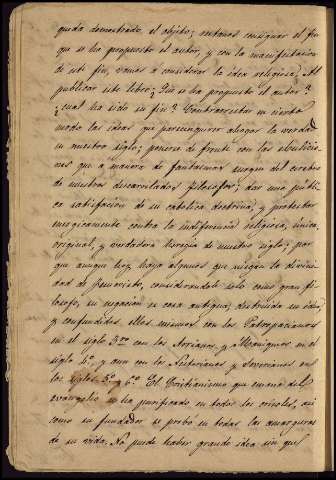 queda demostrado el objeto; entonces conseguir el fin
que se ha propuesto el autor, y con la manifestacion
de este fin, vamos á considerar la idea religiosa. Al
publicar este libro; Que se ha propuesto el autor?
¿cual ha sido su fin? Contrarrestar en cierto
modo las ideas que persiguieron ahogar la verdad
en nuestro siglo; ponerse de frente con las ebulicio
nes que a manera de fantasmas surgen del cerebro
de nuestros descarrilados filosofos; dar una públi
ca satisfaccion de su catolica doctrina; y protestar
energicamente contra la indiferencia religiosa, única,
original, y verdadera heregia de nuestro siglo; por
que aunque hoy haya algunos que niegan la divini
dad de Jesucristo, considerandole solo como gran fi
losofo, su negacion es cosa antigua, destruida su idea,
y confundidos ellos mismos con los Patropasianos
en el siglo 3ro con los Arrianos y Maniqueos en el
siglo 4o, y aun con los Nestorianos y Severianos en
los siglos 5o y 6o. El Cristianismo que emana del
evangelio se ha purificado en todos los crisoles, asi
como su fundador se probó en todas las amarguras
de su vida. No puede haber grande idea sin que